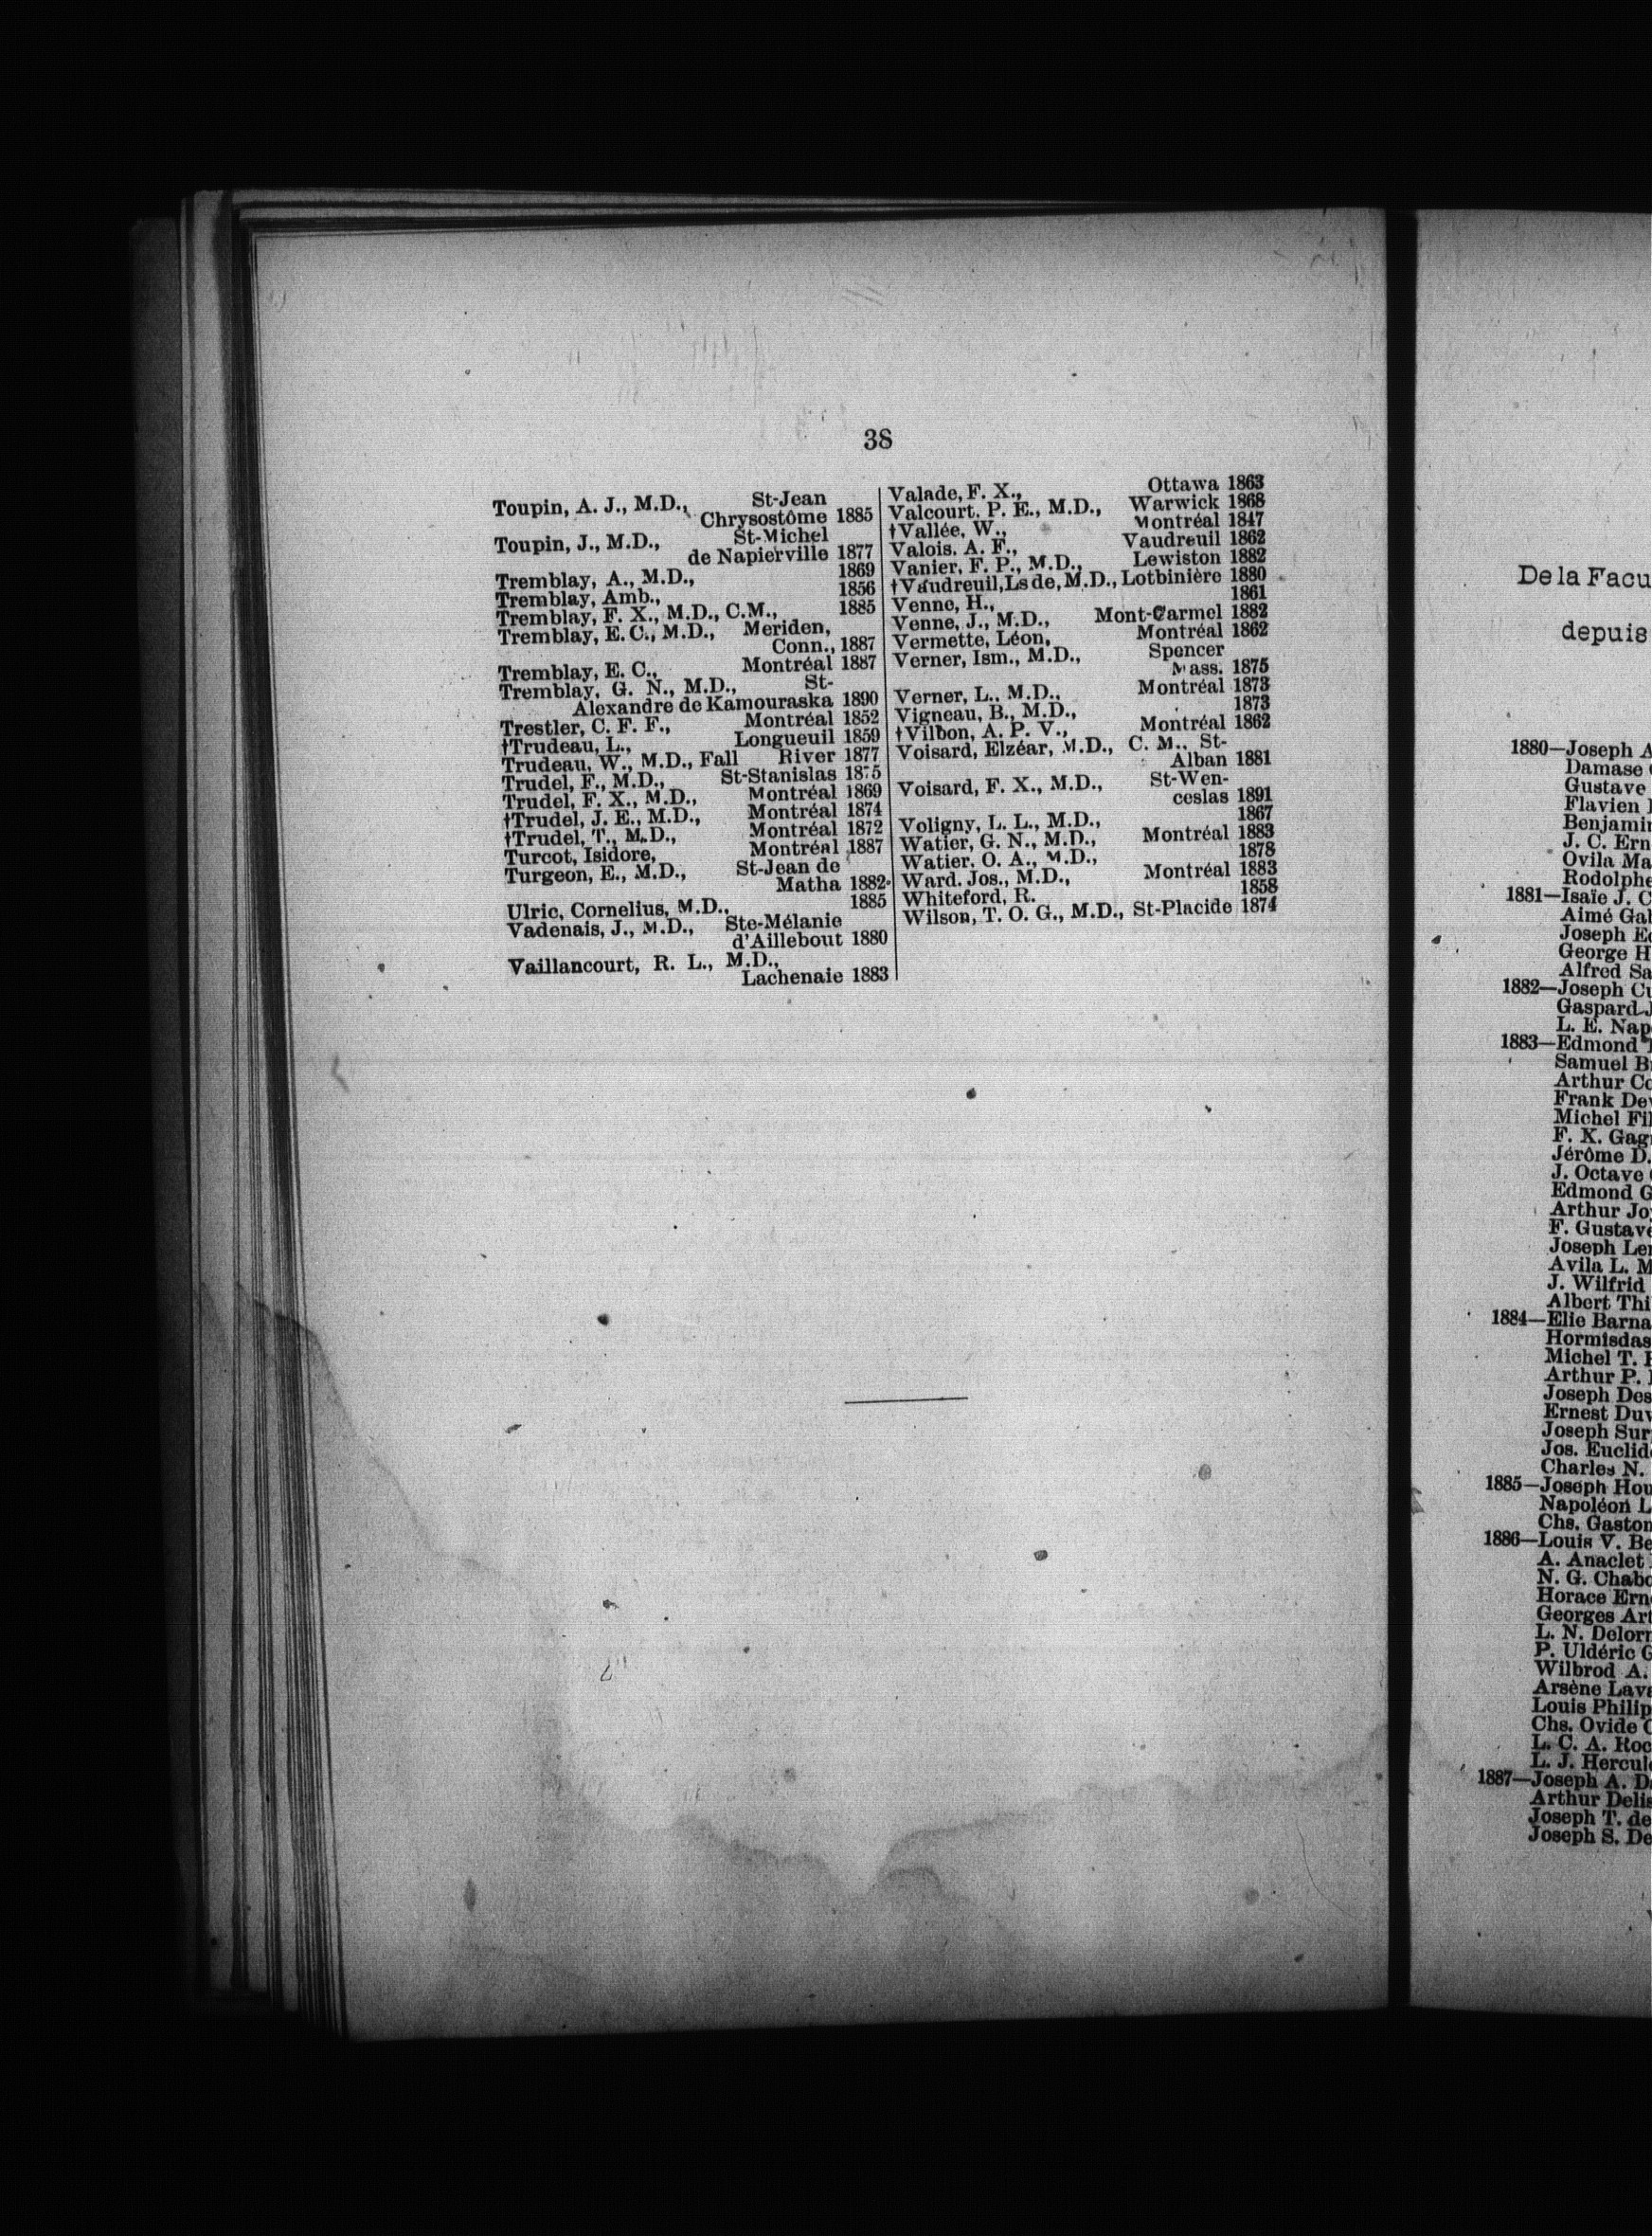 38
Toupin, A. J., M.D., St-Jean
Chrysostôme 1885
Toupin, J., M.D., St-Michel
de Napierville 1877
Tremblay, A., M.D., 1869
Tremblay, Amb., 1856
Tremblay, F. X., M.D., C.M., 1885
Tremblay, E. C., M.D., Meriden,
Conn., 1887
Tremblay, E. C., Montréal 1887
Tremblay, G. N., M.D., St-
Alexandre de Kamouraska 1890
Trestler, C. F. F., Montréal 1852
†Trudeau, L., Longueuil 1859
Trudeau, W., M.D., Fall River 1877
Trudel, F., M.D., St-Stanislas 1875
Trudel, F. X., M.D., Montréal 1869
†Trudel, J. E., M.D., Montréal 1874
†Trudel, T., M.D., Montréal 1872
Turcot, Isidore, Montréal 1887
Turgeon, E., M.D., St-Jean de
Matha 1882
Ulric, Cornelius, M.D., 1885
Vadenais, J., M.D., Ste-Mélanie
d'Aillebout 1880
Vaillancourt, R. L., M.D.,
Lachenaie 1883
Valade, F. X., Ottawa 1863
Valcourt, P. E., M.D., Warwick 1868
†Vallée, W., Montréal 1847
Valois, A. F., Vaudreuil 1862
Vanier, F. P., M.D., Lewiston 1882
†Vaudreuil, Ls de, M.D., Lotbinière 1880
Venne, H., 1861
Venne, J., M.D., Mont-Carmel 1882
Vermette, Léon, Montréal 1862
Verner, Ism., M.D., Spencer
Mass. 1875
Verner, L., M.D., Montréal 1873
Vigneau, B., M.D., 1873
†Vilbon, A. P. V., Montréal 1862
Voisard, Elzéar, M.D., C. M., St-
Alban 1881
Voisard, F. X., M.D., St-Wen-
ceslas 1891
Voligny, L. L., M.D., 1867
Watier, G. N., M.D., Montréal 1883
Watier, O. A., M.D., 1878
Ward. Jos., M.D., Montréal 1883
Whiteford, R. 1858
Wilson, T. O. G., M.D., St-Placide 1874
De la Facu
depuis
1880—Joseph A
Damase
Gustave
Flavien
Benjamin
J. C. Ern
Ovila Ma
Rodolphe
1881—Isaïe J. C
Aimé Gal
Joseph Ed
George H
Alfred Sa
1882—Joseph Cu
Gaspard J
L. E. Nap
1883—Edmond
Samuel B
Arthur Co
Frank De
Michel Fil
F. X. Gag
Jérôme D.
J. Octave
Edmond G
Arthur Jo
F. Gustave
Joseph Le
Avila L. M
J. Wilfrid
Albert Thi
1884—Elie Barna
Hormisdas
Michel T.
Arthur P.
Joseph Des
Ernest Duv
Joseph Sur
Jos. Euclid
Charles N.
1885—Joseph Hou
Napoléon L
Chs. Gaston
1886—Louis V. Be
A. Anaclet
N. G. Chabo
Horace Ern
Georges Art
L. N. Delor
P. Uldéric G
Wilbrod A.
Arsène Lava
Louis Philip
Chs. Ovide
L. C. A. Roc
L. J. Hercul
1887—Joseph A. D
Arthur Delis
Joseph T. de
Joseph S. De